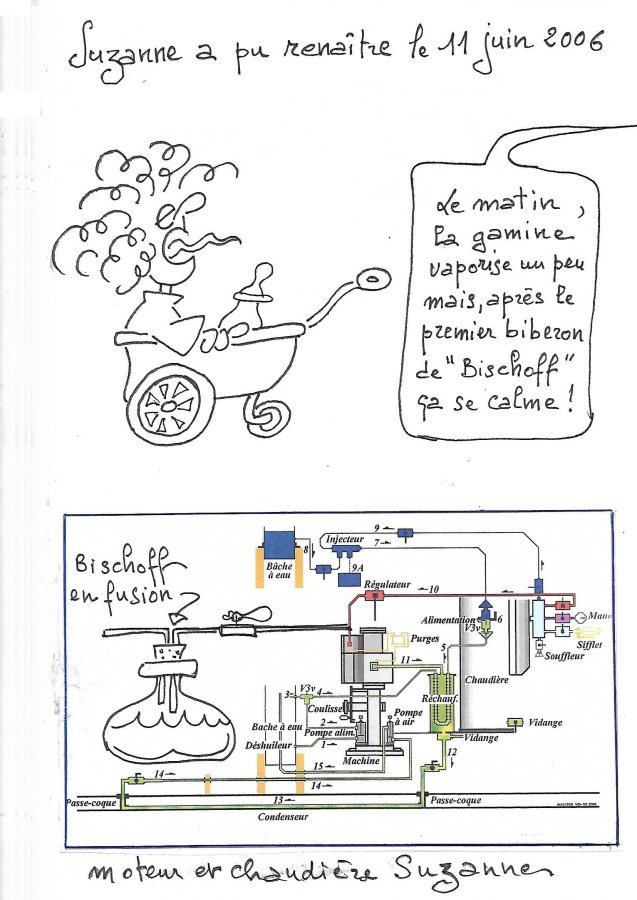 Suzanne a pu renaître le 11 juin 2006
Le matin,
la gamine
vaporise un peu
mais, après le
premier biberon
de "Bischoff"
ça se calme !
Bischoff
en fusion
Bâche
à eau
8
Injecteur
9
7
9A
Régulateur
10
Alimentation
V3v
6
Mano
Sifflet
Souffleur
Purges
11
5
Chaudière
Réchauf.
3
V3v
4
Coulisse
2
Bache à eau
Pompe alim.
Pompe
à air
Déshuileur
1
Machine
Vidange
Vidange
12
15
14
14
Passe-coque
13
Passe-coque
Condenseur
moteur et chaudière Suzanne